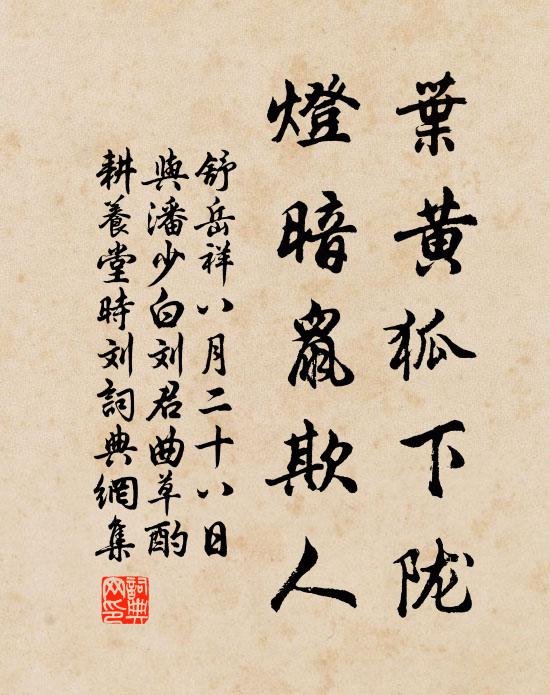 葉黄狐下陇
燈暗鼠欺人
舒岳祥八月二十八日
與潘少白刘君曲草酌
耕養堂時刘詞典網集
詞典网印